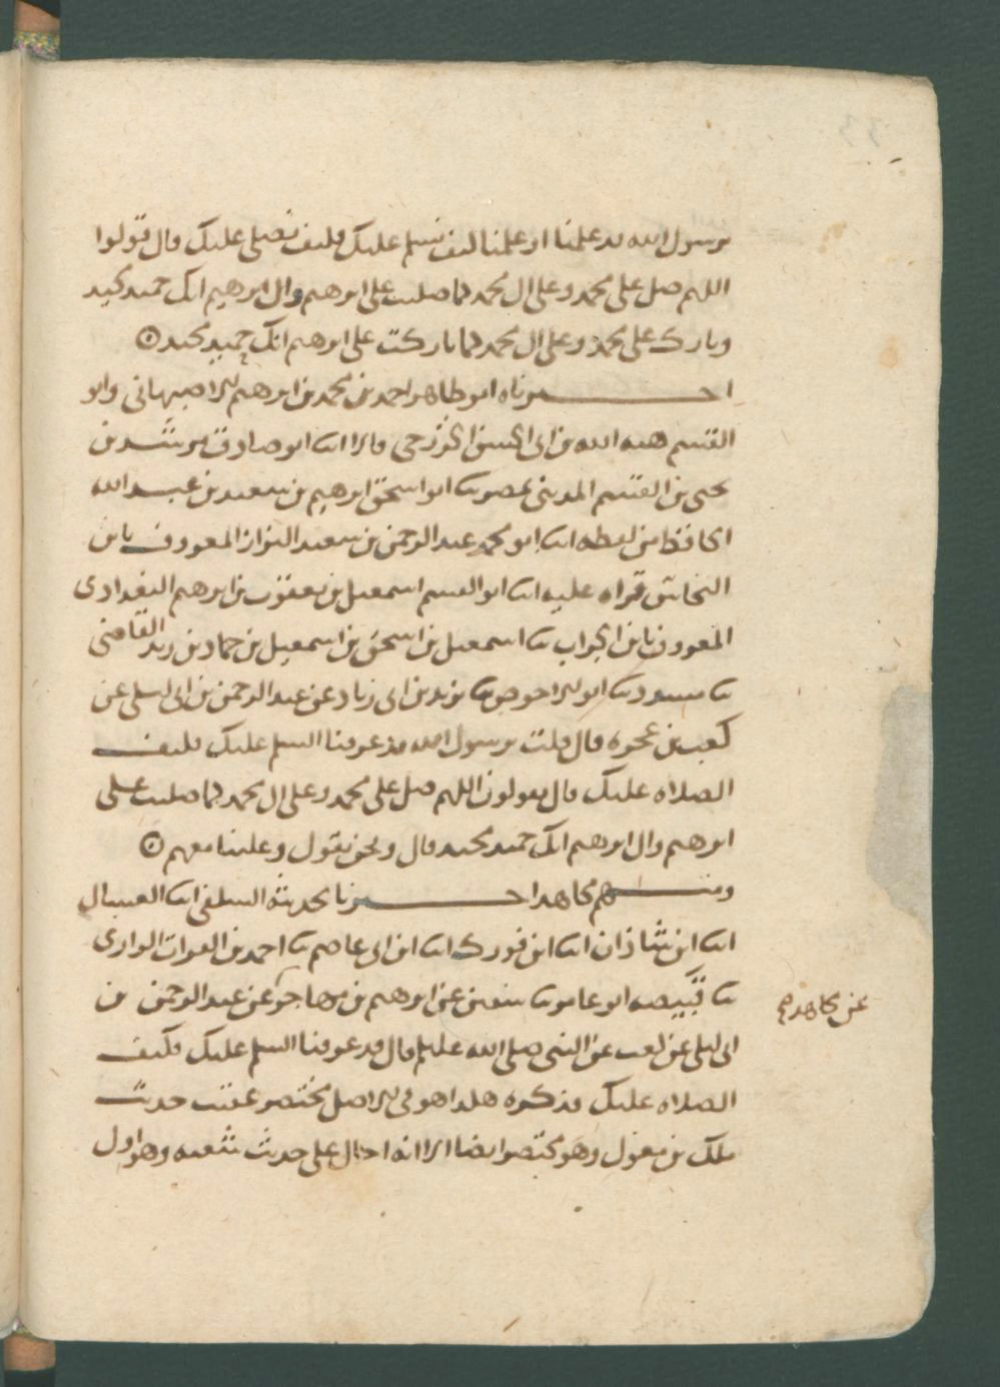 يرسول الله قد علمنا او علمنا كيف نسلم عليك فكيف نصلي عليك قال قولوا
اللهم صل على محمد وعلى ال محمد كما صليت على ابرهيم وال ابرهيم انك حميد مجيد
وبارك على محمد وعلى ال محمد كما باركت على ابرهيم انك حميد مجيد
اخبرناه ابو طاهر احمد بن محمد بن ابرهيم الاصبهاني وابو
القسم هبه الله بن ابي الحسن قالا انا ابو صادق مرشد بن
يحيى بن القسم المديني بمصر ثنا ابو اسحق ابرهيم بن سعيد بن عبد الله
الحافظ من لفظه انا ابو محمد عبد الرحمن بن سعيد البزاز المعروف بابن
النحاس قراه عليه انا ابو القسم اسمعيل بن يعقوب بن ابرهيم البغدادي
المعروف بابن الجراب ثنا اسمعيل بن اسحق بن اسمعيل بن حماد بن زيد القاضي
ثنا مسدد ثنا ابو الاحوص ثنا يزيد بن ابي زياد عن عبد الرحمن بن ابي ليلى عن
كعب بن عجره قال قلت يرسول الله قد عرفنا السلم عليك فكيف
الصلاه عليك قال تقولون اللهم صل على محمد وعلى ال محمد كما صليت على
ابرهيم وال ابرهيم انك حميد مجيد قال ونحن نقول وعلينا معهم
ومنهم مجاهد اخبرنا بحديثه السلفي انا
انا ابن شاذان انا ابن فورك انا ابن ابي عاصم ثنا احمد بن الفرات الرازي
ثنا قبيصه ابو عامر ثنا سفين عن ابرهيم بن مهاجر عن عبد الرحمن بن
عن مجاهد صح
ابي ليلى عن كعب عن النبي صلى الله عليه قال قد عرفنا السلم عليك فكيف
الصلاه عليك فذكره هكذا هو في الاصل مختصر عقيب حديث
ملك بن مغول وهو مختصر ايضا الا انه احال على حديث شعبه وهو اول